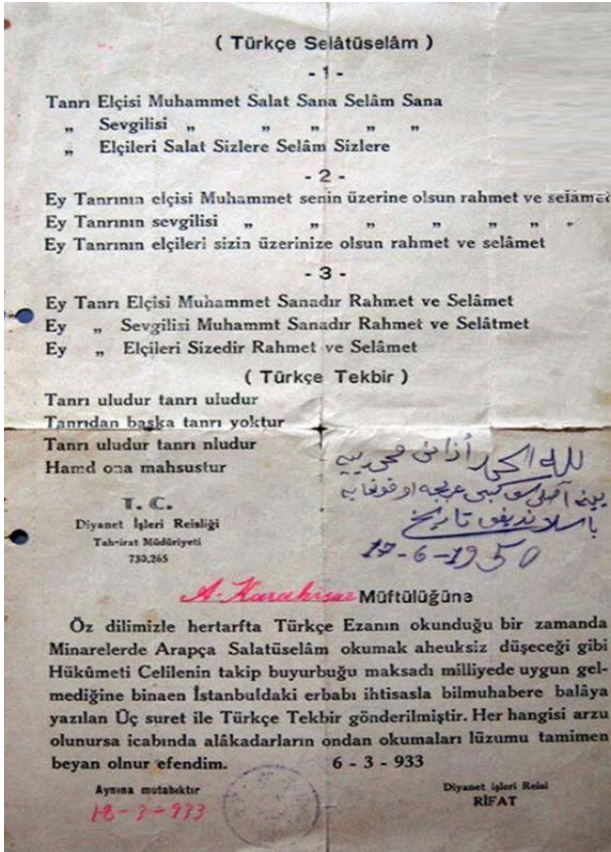 ( Türkçe Selâtüselâm )
- 1 -
Tanrı Elçisi Muhammet Salat Sana Selâm Sana
„ Sevgilisi „ „ „ „ „
„ Elçileri Salat Sizlere Selâm Sizlere
- 2 -
Ey Tanrının elçisi Muhammet senin üzerine olsun rahmet ve selâmet
Ey Tanrının sevgilisi „ „ „ „ „ „ „
Ey Tanrının elçileri sizin üzerinize olsun rahmet ve selâmet
- 3 -
Ey Tanrı Elçisi Muhammet Sanadır Rahmet ve Selâmet
Ey „ Sevgilisi Muhammt Sanadır Rahmet ve Selâtmet
Ey „ Elçileri Sizedir Rahmet ve Selâmet
( Türkçe Tekbir )
Tanrı uludur tanrı uludur
Tanrıdan başka tanrı yoktur
Tanrı uludur tanrı nludur
Hamd ona mahsustur
لله الحمد أذانى محمديه
يينه اصلى كبى عربجه اوقونغا يه
باشلانديغى تاريخ
17-6-1950
T. C.
Diyanet İşleri Reisliği
Tahrirat Müdüriyeti
730,265
A. Karahisar Müftülüğüne
Öz dilimizle hertarfta Türkçe Ezanın okunduğu bir zamanda
Minarelerde Arapça Salatüselâm okumak aheuksiz düşeceği gibi
Hükûmeti Celilenin takip buyurbuğu maksadı milliyede uygun gel-
mediğine binaen İstanbuldaki erbabı ihtisasla bilmuhabere balâya
yazılan Üç suret ile Türkçe Tekbir gönderilmiştir. Her hangisi arzu
olunursa icabında alâkadarların ondan okumaları lüzumu tamimen
beyan olnur efendim. 6 - 3 - 933
Aynına mutabıktır
18-3-933
Diyanet işleri Reisi
RİFAT